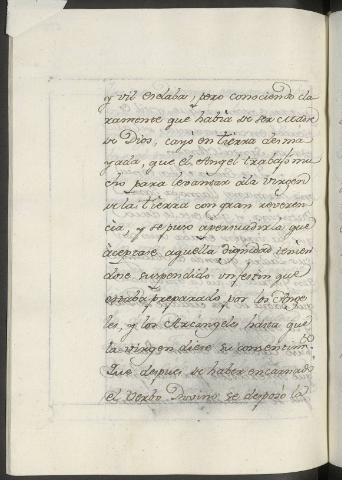 y vil esclaba, pero conociendo cla
ramente que habia de ser Madre
de Dios, cayó en tierra desma
yada, que el Angel trabajó mu
cho para lebantar á la Virgen
de la tierra con gran reveren
cia, y se puso a persuadirla que
aceptase aquella dignidad tenien
dose suspendido un festin que
estaba preparado por los Ange
les, y los Arcangeles hasta que
la Virgen diese su consentim.to
Que despues de haber encarnado
el Verbo Divino se desposó la